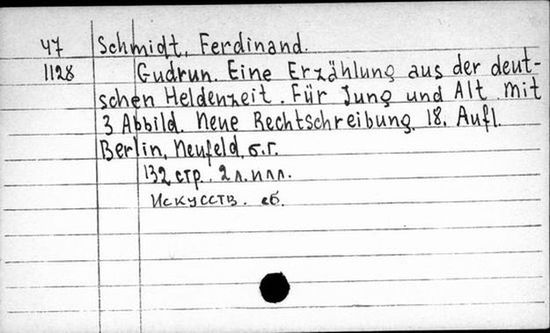 47 Schmidt, Ferdinand.
1128 Gudrun. Eine Erzählung aus der deut-
schen Heldenzeit. Für Jung und Alt mit
3 Abbild. Neue Rechtschreibung. 18. Aufl.
Berlin, Neufeld, б.г.
132 стр. 2 л. илл.
Искусств. сб.